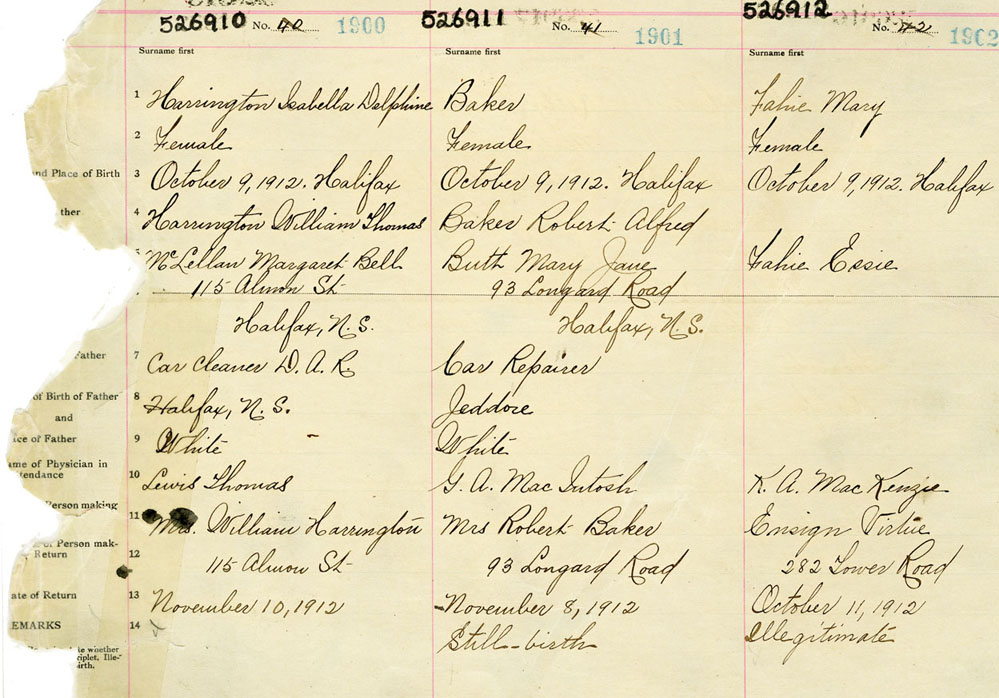 526910 No. 40 1900
526911 No. 41 1901
526912 No. 42 1902
Surname first
Surname first
Surname first
1 Harrington Isabella Delphine
Baker
Fahie Mary
2 Female
Female
Female
nd Place of Birth
3 October 9, 1912. Halifax
October 9, 1912. Halifax
October 9, 1912. Halifax
ther
4 Harrington William Thomas
Baker Robert Alfred
5 McLellan Margaret Bell
Buth Mary Jane
Fahie Essie
115 Almon St
93 Longard Road
Halifax, N.S.
Halifax, N.S.
Father
7 Car Cleaner D.A.R.
Car Repairer
of Birth of Father
8 Halifax, N.S.
Jeddore
and
ce of Father
9 White
White
ame of Physician in
tendance
10 Lewis Thomas
G. A. MacIntosh
K. A. MacKenzie
Person making
11 Mrs. William Harrington
Mrs Robert Baker
Ensign Virtue
of Person mak-
Return
12 115 Almon St
93 Longard Road
282 Lower Road
ate of Return
13 November 10, 1912
November 8, 1912
October 11, 1912
EMARKS
14
Still-birth
Illegitimate
te whether
riplet, Ille-
irth.